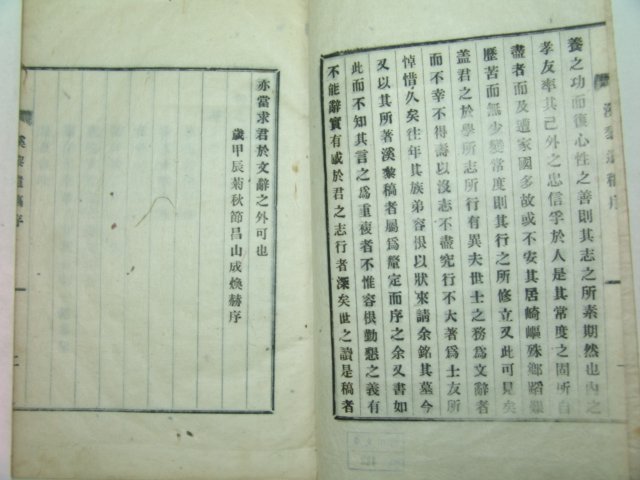 養之功而復心性之善則其志之所素期然也內之
孝友率其己外之忠信孚於人是其常度之固所自
盡者而及遭家國多故或不安其居崎嶇殊鄉蹈難
歷苦而無少變常度則其行之所修立又此可見矣
盖君之於學所志所行有異夫世士之務爲文辭者
而不幸不得壽以沒志不盡究行不大著爲士友所
悼惜久矣往年其族弟容恨以狀來請余銘其墓今
又以其所著溪黎稿者屬爲釐定而序之余又書如
此而不知其言之爲重複者不惟容恨勤懇之義有
不能辭實有感於君之志行者深矣世之讀是稿者
亦當求君於文辭之外可也
歲甲辰菊秋節昌山成煥赫序
溪黎遺稿序
二